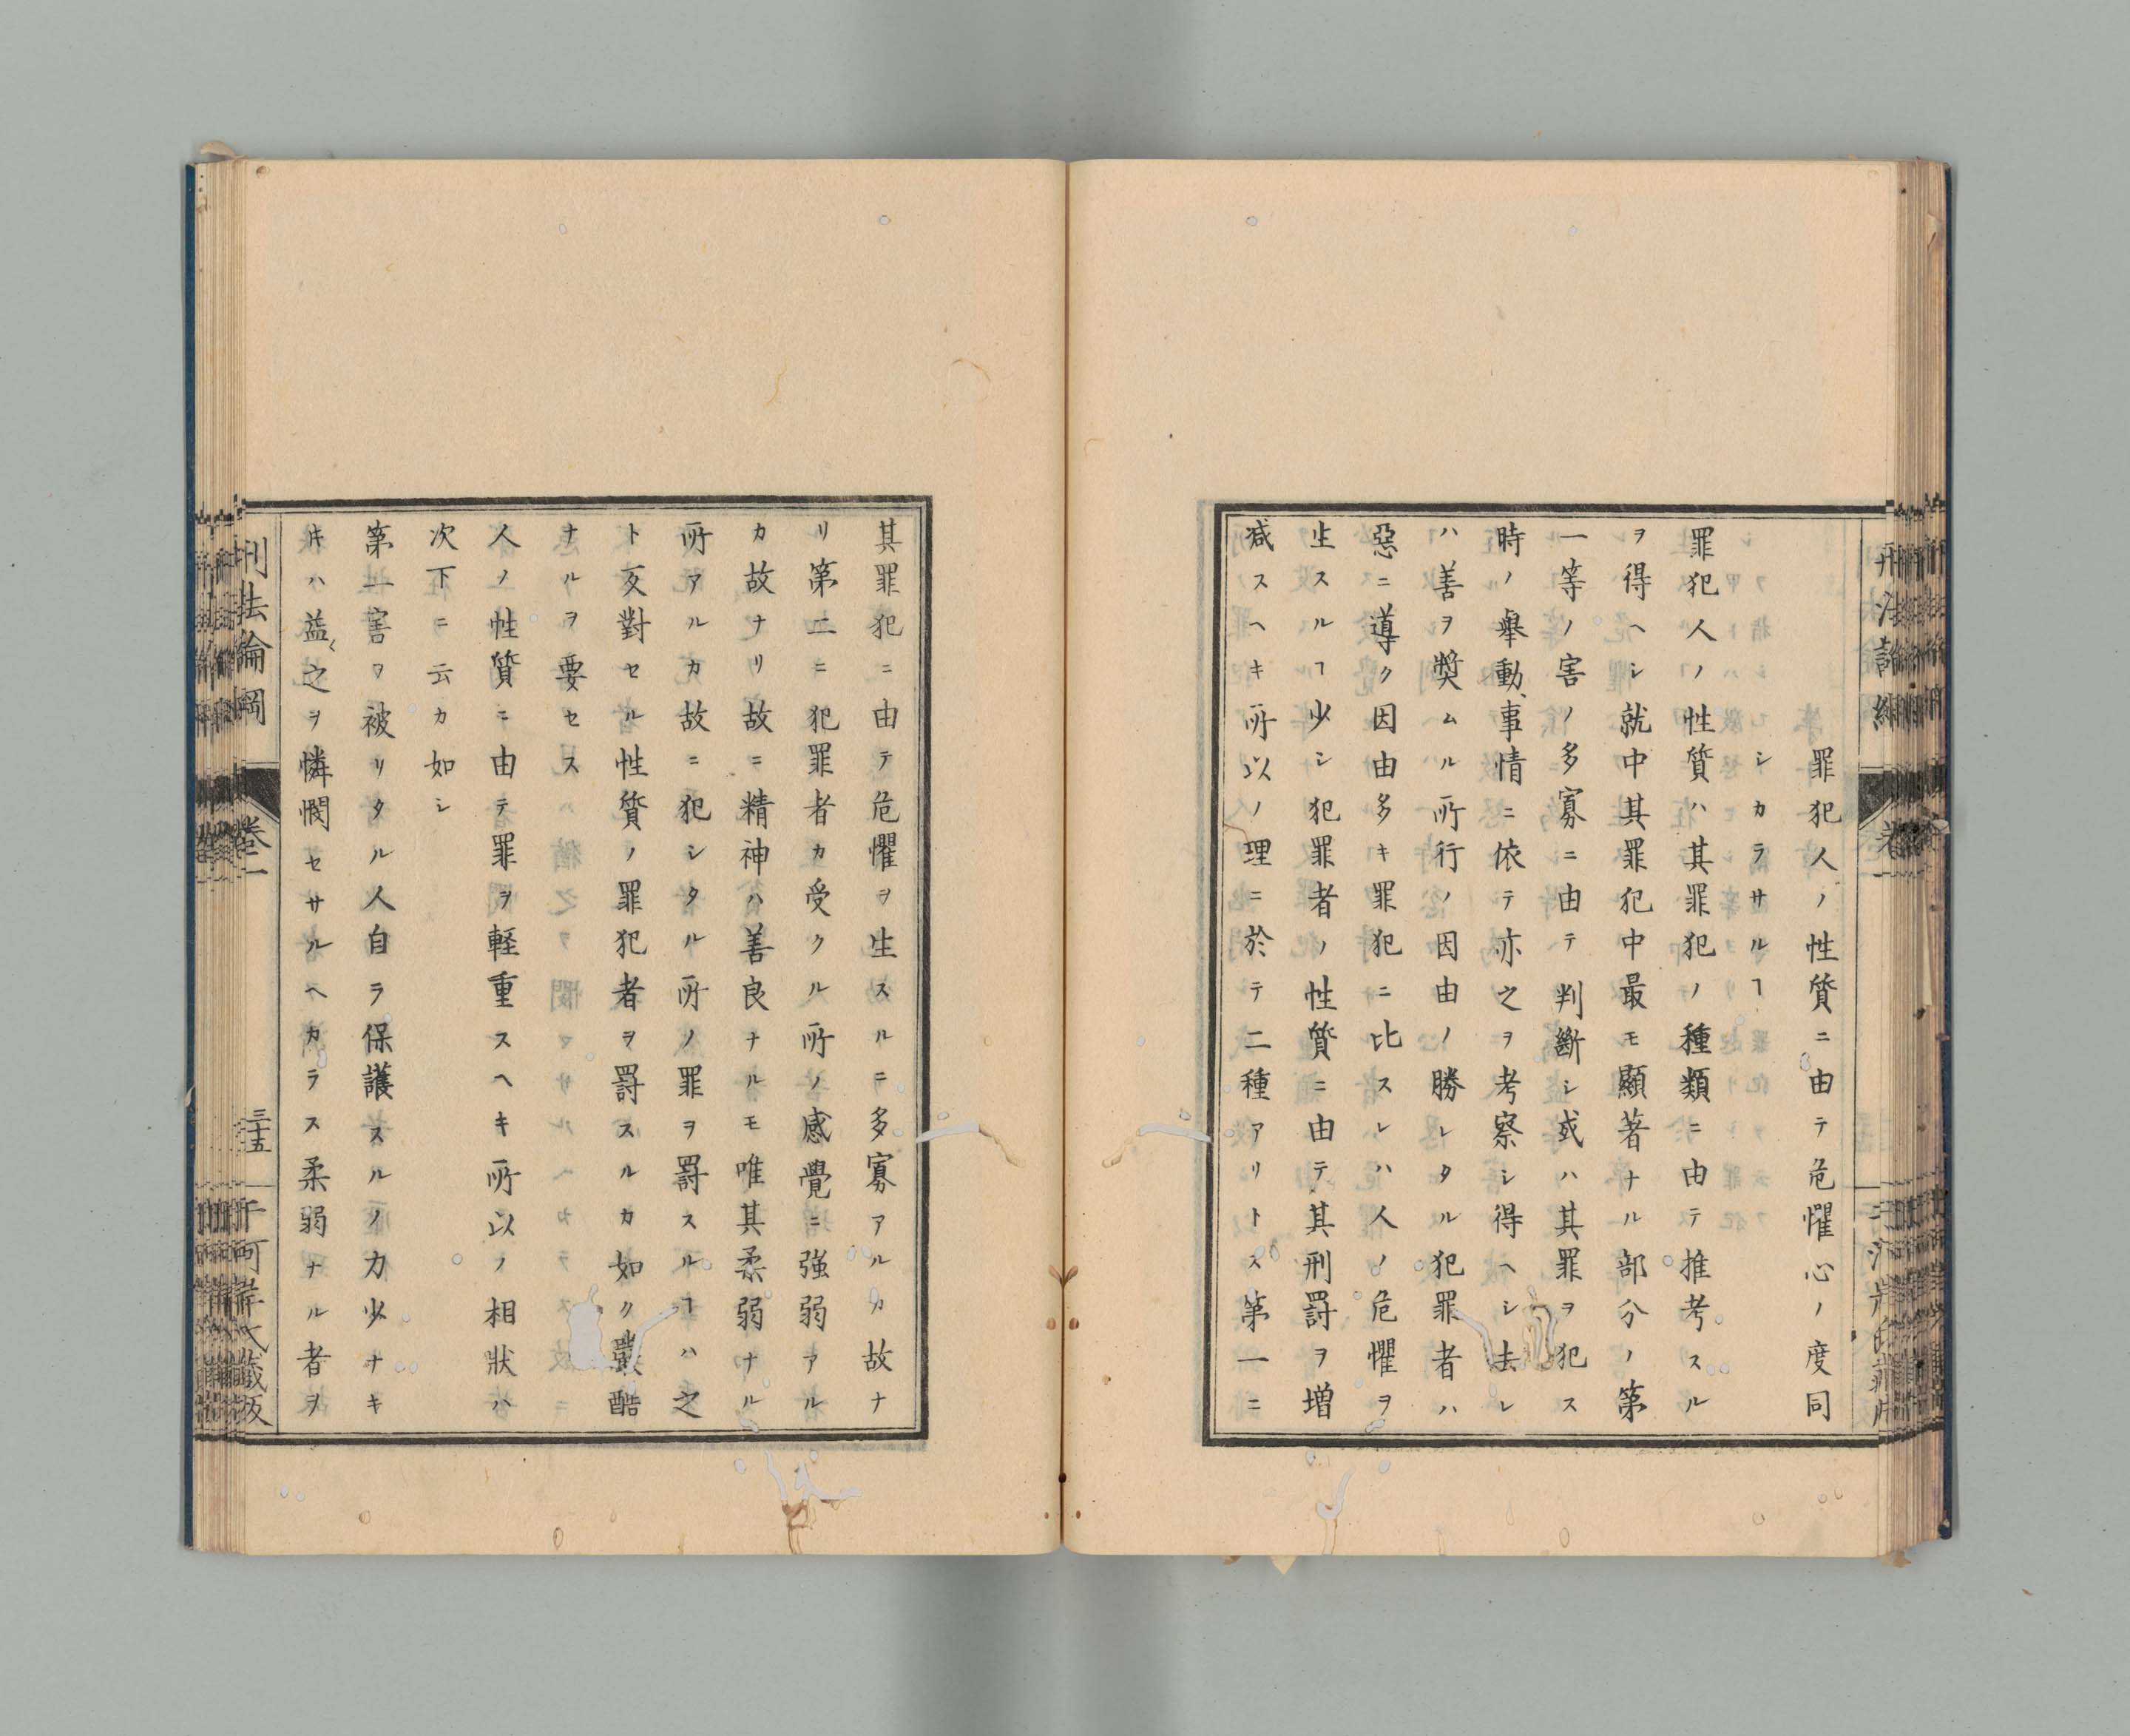 罪犯人ノ性質ニ由テ危懼心ノ度同
シカラサルヿ
罪犯人ノ性質ハ其罪犯ノ種類ニ由テ推考スル
ヲ得ヘシ就中其罪犯中最モ顯著ナル部分ノ第
一等ノ害ノ多寡ニ由テ判斷シ或ハ其罪ヲ犯ス
時ノ擧動、事情ニ依テ亦之ヲ考察シ得ヘシ去レ
ハ善ヲ奬ムル所行ノ因由ノ勝レタル犯罪者ハ
惡ニ導ク因由多キ罪犯ニ比スレハ人ノ危懼ヲ
生スルヿ少シ犯罪者ノ性質ニ由テ其刑罸ヲ増
减スヘキ所以ノ理ニ於テ二種アリトス第一ニ
其罪犯ニ由テ危懼ヲ生スルニ多寡アルカ故ナ
リ第二ニ犯罪者カ受クル所ノ感覺ニ強弱アル
カ故ナリ故ニ精神ハ善良ナルモ唯其柔弱ナル
所アルカ故ニ犯シタル所ノ罪ヲ罸スルヿハ之
ト反對セル性質ノ罪犯者ヲ罸スルカ如ク嚴酷
ナルヲ要セス
人ノ性質ニ由テ罪ヲ軽重スヘキ所以ノ相狀ハ
次下ニ云カ如シ
第一害ヲ被リタル人自ラ保護スルノ力少ナキ
𪜈ハ益〻之ヲ憐憫セサルヘカラス柔弱ナル者ヲ
刑法論綱 卷二 三十五